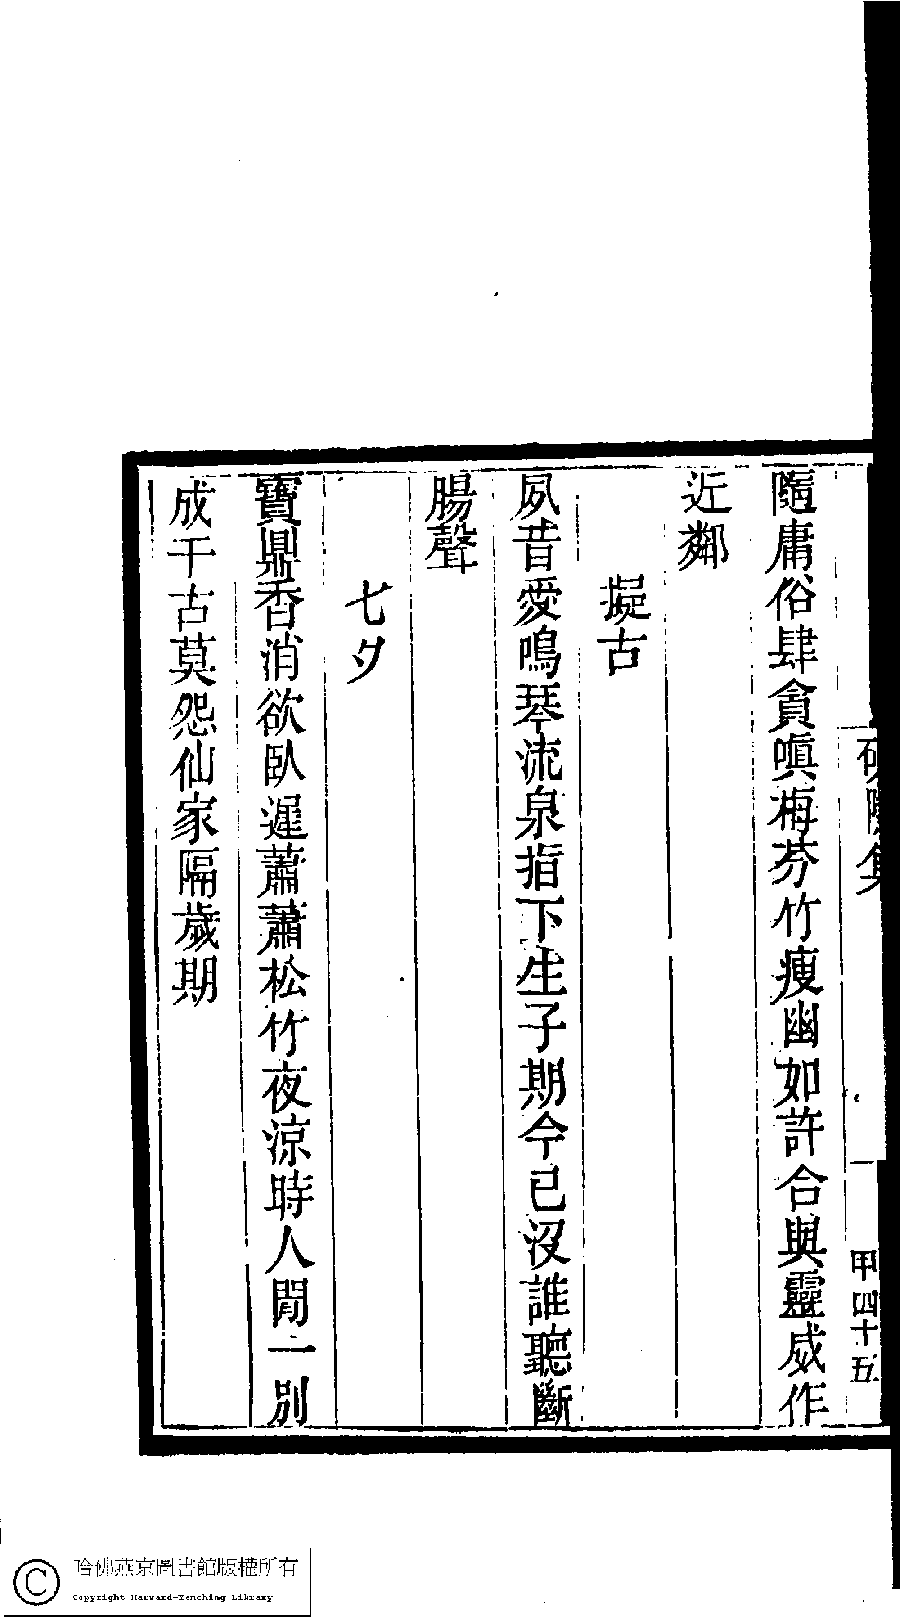 隨庸俗肆貪嗔梅芬竹瘦幽如許合與靈威作
近鄰
擬古
夙昔愛鳴琴流泉指下生子期今已沒誰聽斷
腸聲
七夕
寶鼎香消欲臥遲蕭蕭松竹夜涼時人閒一別
成千古莫怨仙家隔歲期
集
一
甲四十五
哈佛燕京圖書館版權所有
Copyright Harvard-Yenching Library